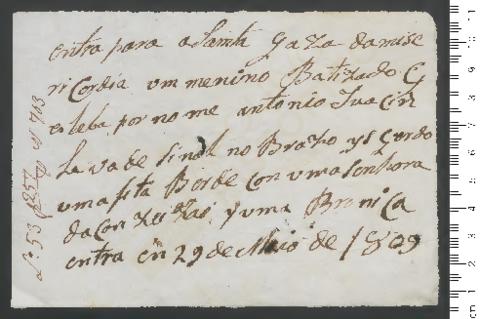 entra para a Santa Gaza da mise
ri Cordia um menino Batizado G
esleba por no me antonio Jua Cin
La va de sinal no Brazo ysCerdo
uma fita Borde Con uma senhora
da Con 
y uma Bronica
entra en 29 de Maio de 1809
Lº 53 f 257
nº 713